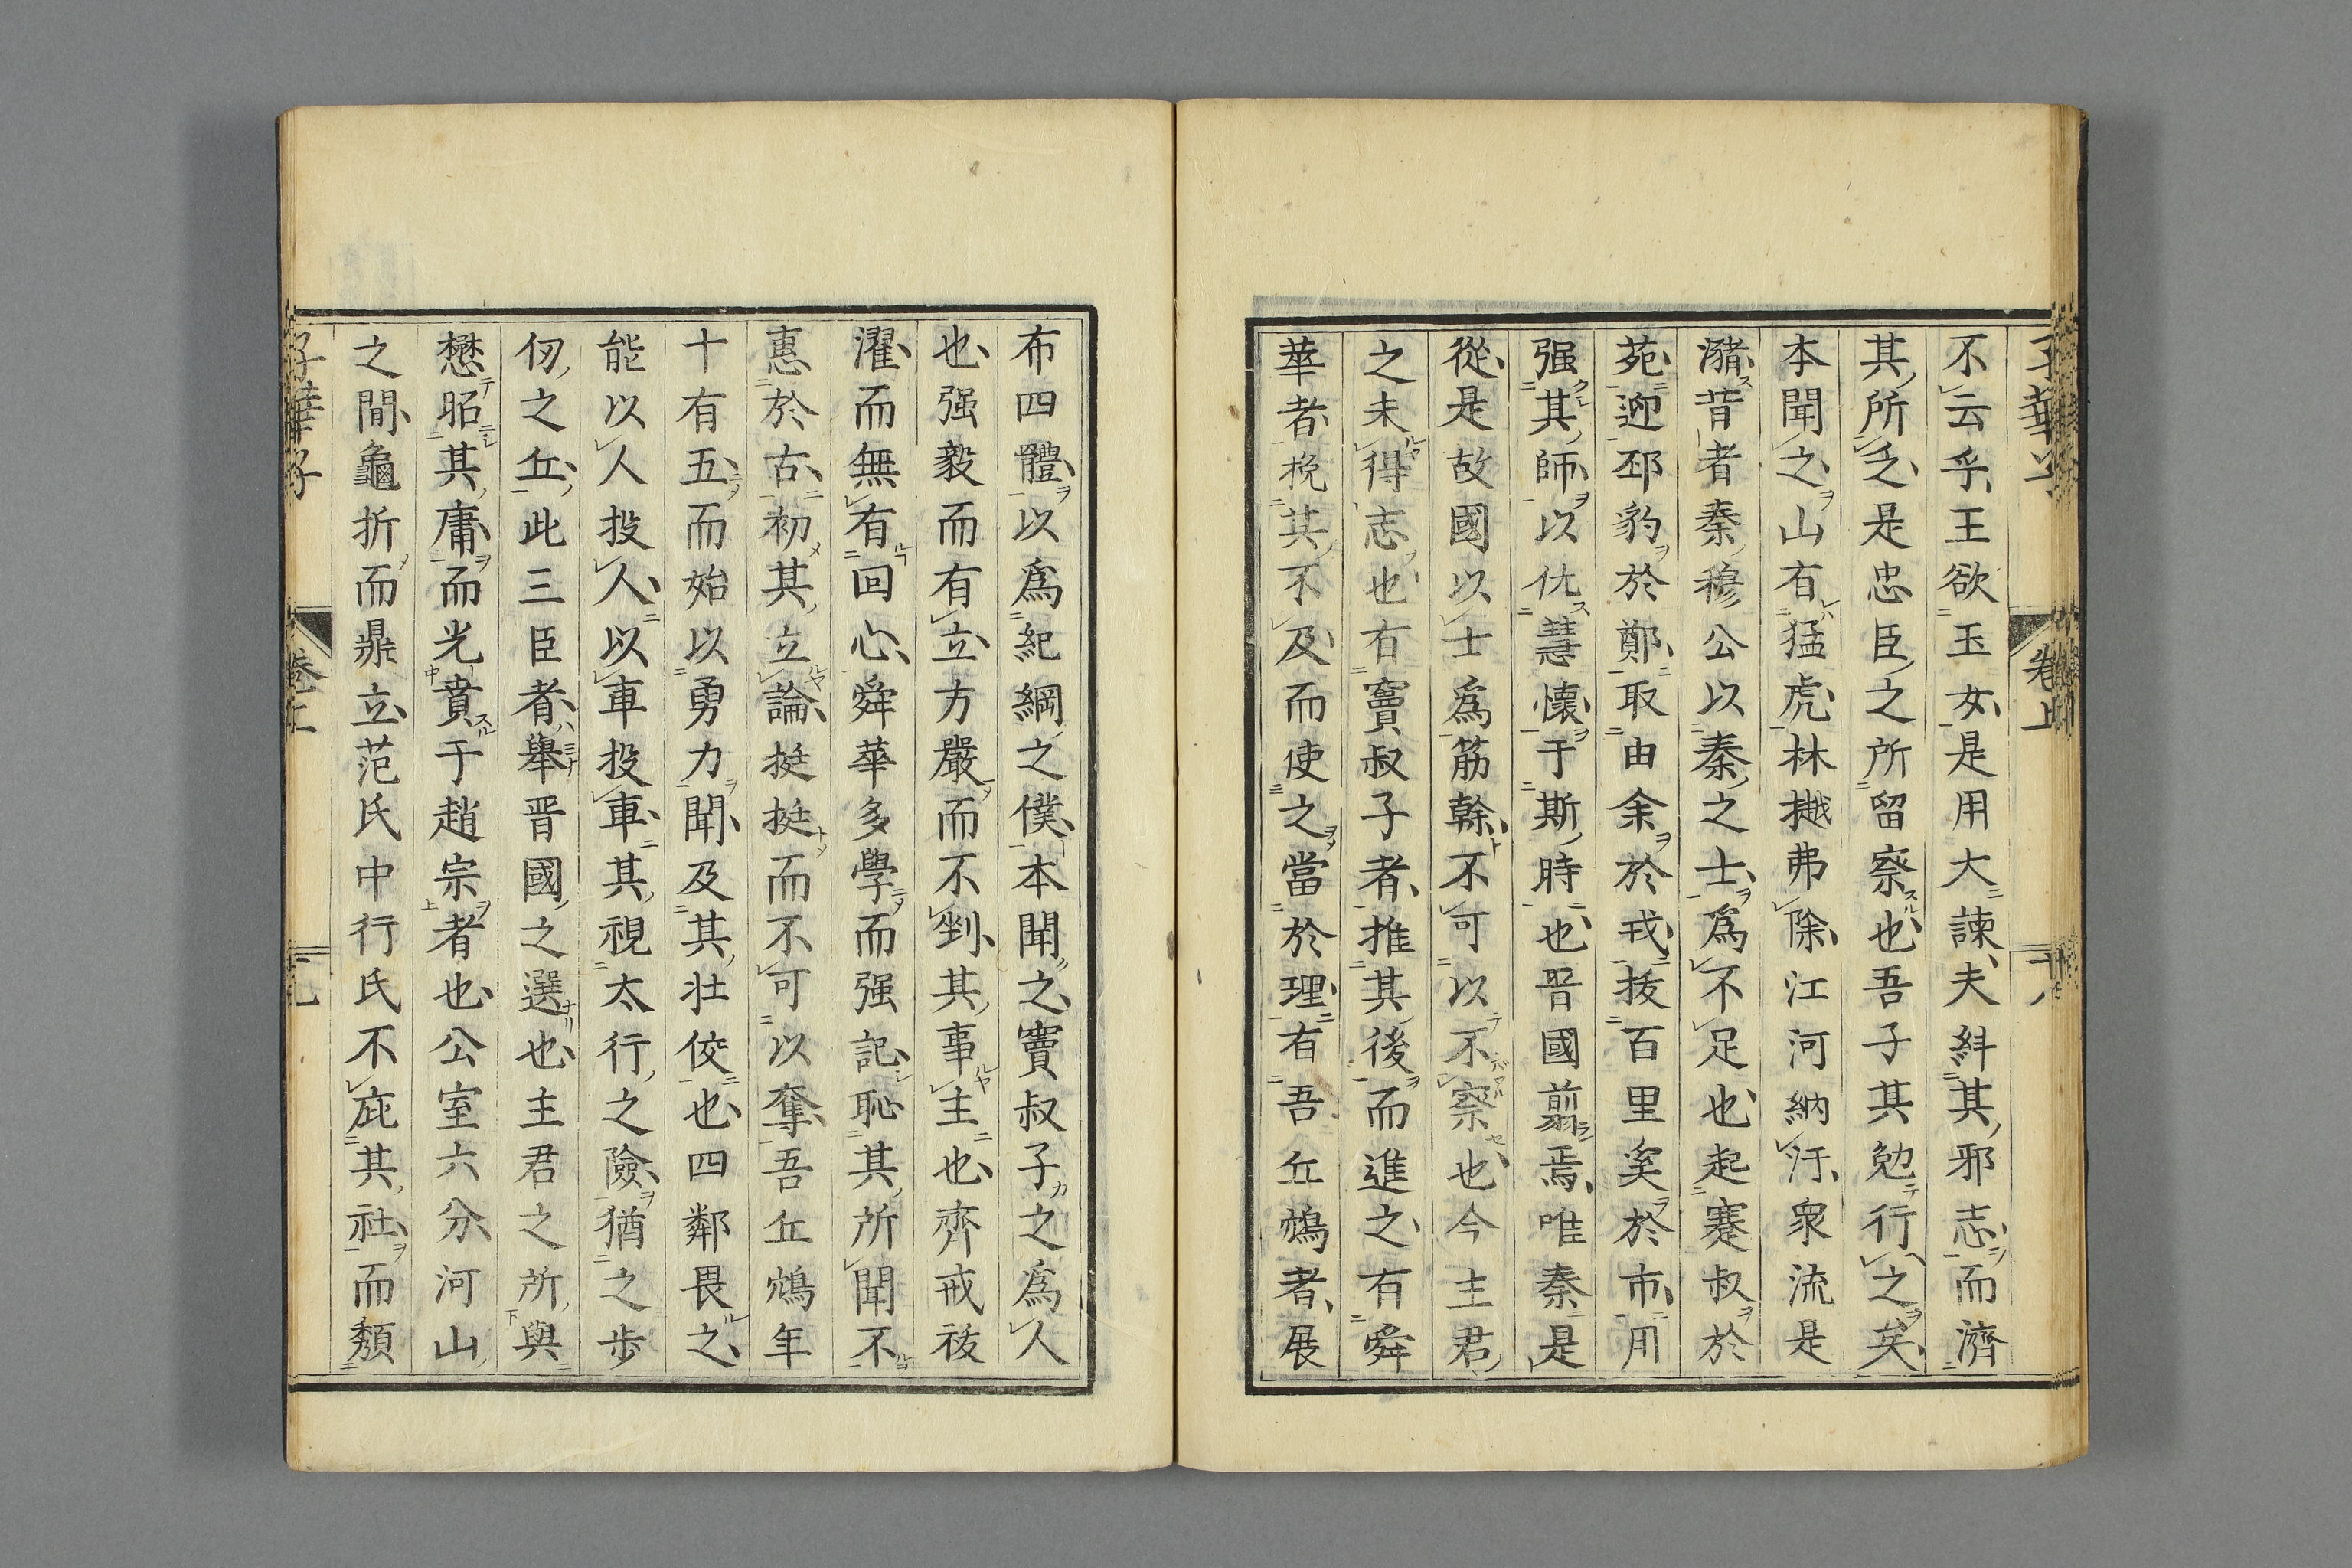 子華子 卷上 十八
不云乎王欲玉女是用大諫夫紏其邪志而濟
其所乏是忠臣之所留察也吾子其勉行之矣
本聞之山有猛虎林樾弗除江河納汙衆流是
瀦昔者秦穆公以秦之士爲不足也起蹇叔於
苑迎邳豹於鄭取由余於戎拔百里奚於市用
强其師以仇慧懷于斯時也晉國翦焉唯秦是
從是故國以士爲筋幹不可以不察也今主君
之未得志也有竇叔子者推其後而進之有舜
華者挽其不及而使之當於理有吾丘鴆者展
布四體以爲紀綱之僕本聞之竇叔子之爲人
也强毅而有立方嚴而不剉其事主也齊戒祓
濯而無有回心舜華多學而强記恥其所聞不
惠於古初其立論挺挺而不可以奪吾丘鴆年
十有五而始以勇力聞及其壯佼也四鄰畏之
能以人投人以車投車其視太行之險猶之步
仞之丘此三臣者舉晉國之選也主君之所與
懋昭其庸而光賁于趙宗者也公室六分河山
之間龜折而鼎立范氏中行氏不庇其社而頹
子華子 卷上 十九